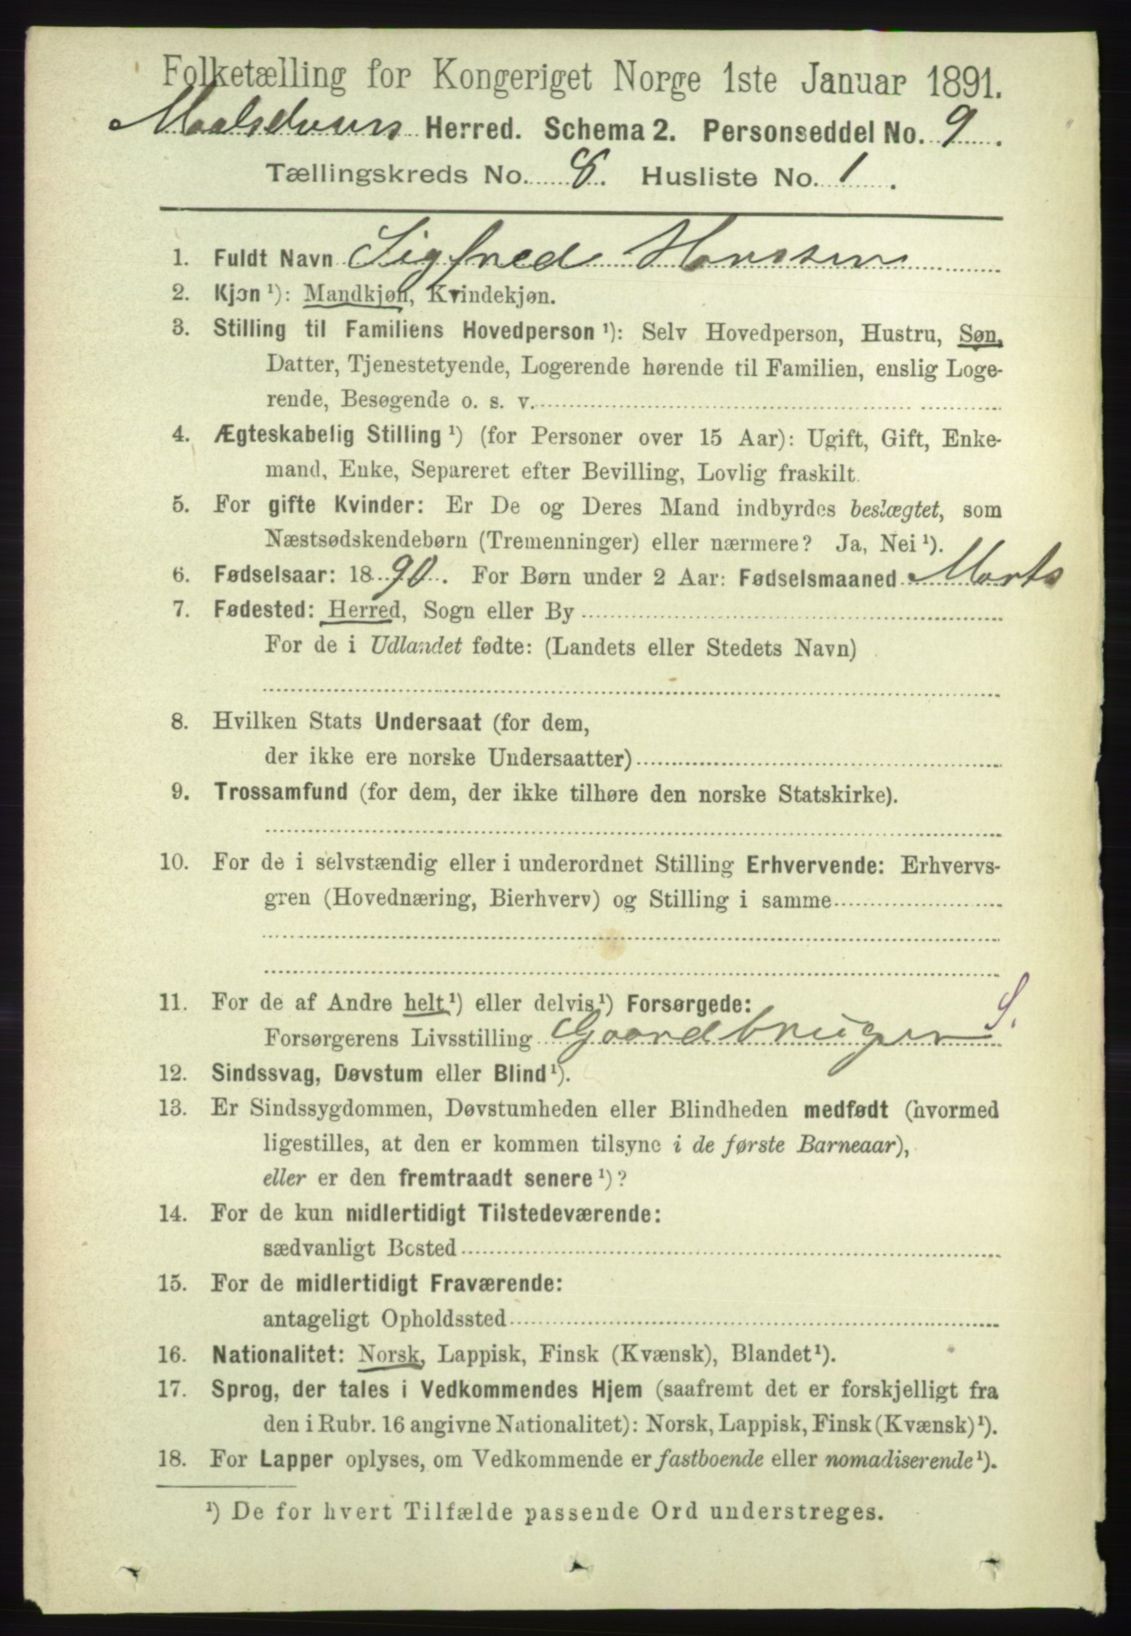 Folketælling for Kongeriget Norge 1ste Januar 1891.
Maalselvens Herred. Schema 2. Personseddel No. 9.
Tællingskreds No. 8. Husliste No. 1.
1. Fuldt Navn Sigfred Hanssen
2. Kjøn ¹): Mandkjøn, Kvindekjøn.
3. Stilling til Familiens Hovedperson ¹): Selv Hovedperson, Hustru, Søn,
Datter, Tjenestetyende, Logerende hørende til Familien, enslig Loge-
rende, Besøgende o. s. v.
4. Ægteskabelig Stilling ¹) (for Personer over 15 Aar): Ugift, Gift, Enke-
mand, Enke, Separeret efter Bevilling, Lovlig fraskilt.
5. For gifte Kvinder: Er De og Deres Mand indbyrdes beslægtet, som
Næstsødskendebørn (Tremenninger) eller nærmere? Ja, Nei ¹).
6. Fødselsaar: 1890. For Børn under 2 Aar: Fødselsmaaned Marts
7. Fødested: Herred, Sogn eller By
For de i Udlandet fødte: (Landets eller Stedets Navn)
8. Hvilken Stats Undersaat (for dem,
der ikke ere norske Undersaatter)
9. Trossamfund (for dem, der ikke tilhøre den norske Statskirke).
10. For de i selvstændig eller i underordnet Stilling Erhvervende: Erhvervs-
gren (Hovednæring, Bierhverv) og Stilling i samme
11. For de af Andre helt ¹) eller delvis ¹) Forsørgede: S.
Forsørgerens Livsstilling Gaardbruger
12. Sindssvag, Døvstum eller Blind ¹).
13. Er Sindssygdommen, Døvstumheden eller Blindheden medfødt (hvormed
ligestilles, at den er kommen tilsyne i de første Barneaar),
eller er den fremtraadt senere ¹)?
14. For de kun midlertidigt Tilstedeværende:
sædvanligt Bosted
15. For de midlertidigt Fraværende:
antageligt Opholdssted
16. Nationalitet: Norsk, Lappisk, Finsk (Kvænsk), Blandet ¹).
17. Sprog, der tales i Vedkommendes Hjem (saafremt det er forskjelligt fra
den i Rubr. 16 angivne Nationalitet): Norsk, Lappisk, Finsk (Kvænsk) ¹).
18. For Lapper oplyses, om Vedkommende er fastboende eller nomadiserende ¹).
¹) De for hvert Tilfælde passende Ord understreges.